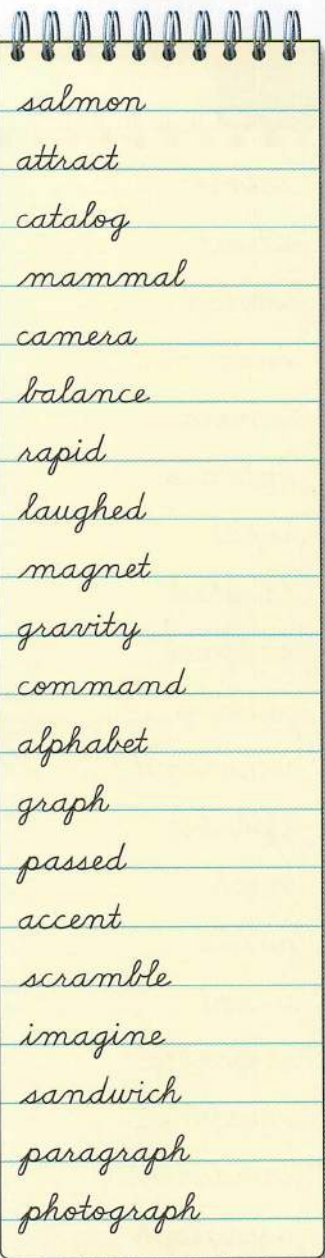 salmon
attract
catalog
mammal
camera
balance
rapid
laughed
magnet
gravity
command
alphabet
graph
passed
accent
scramble
imagine
sandwich
paragraph
photograph